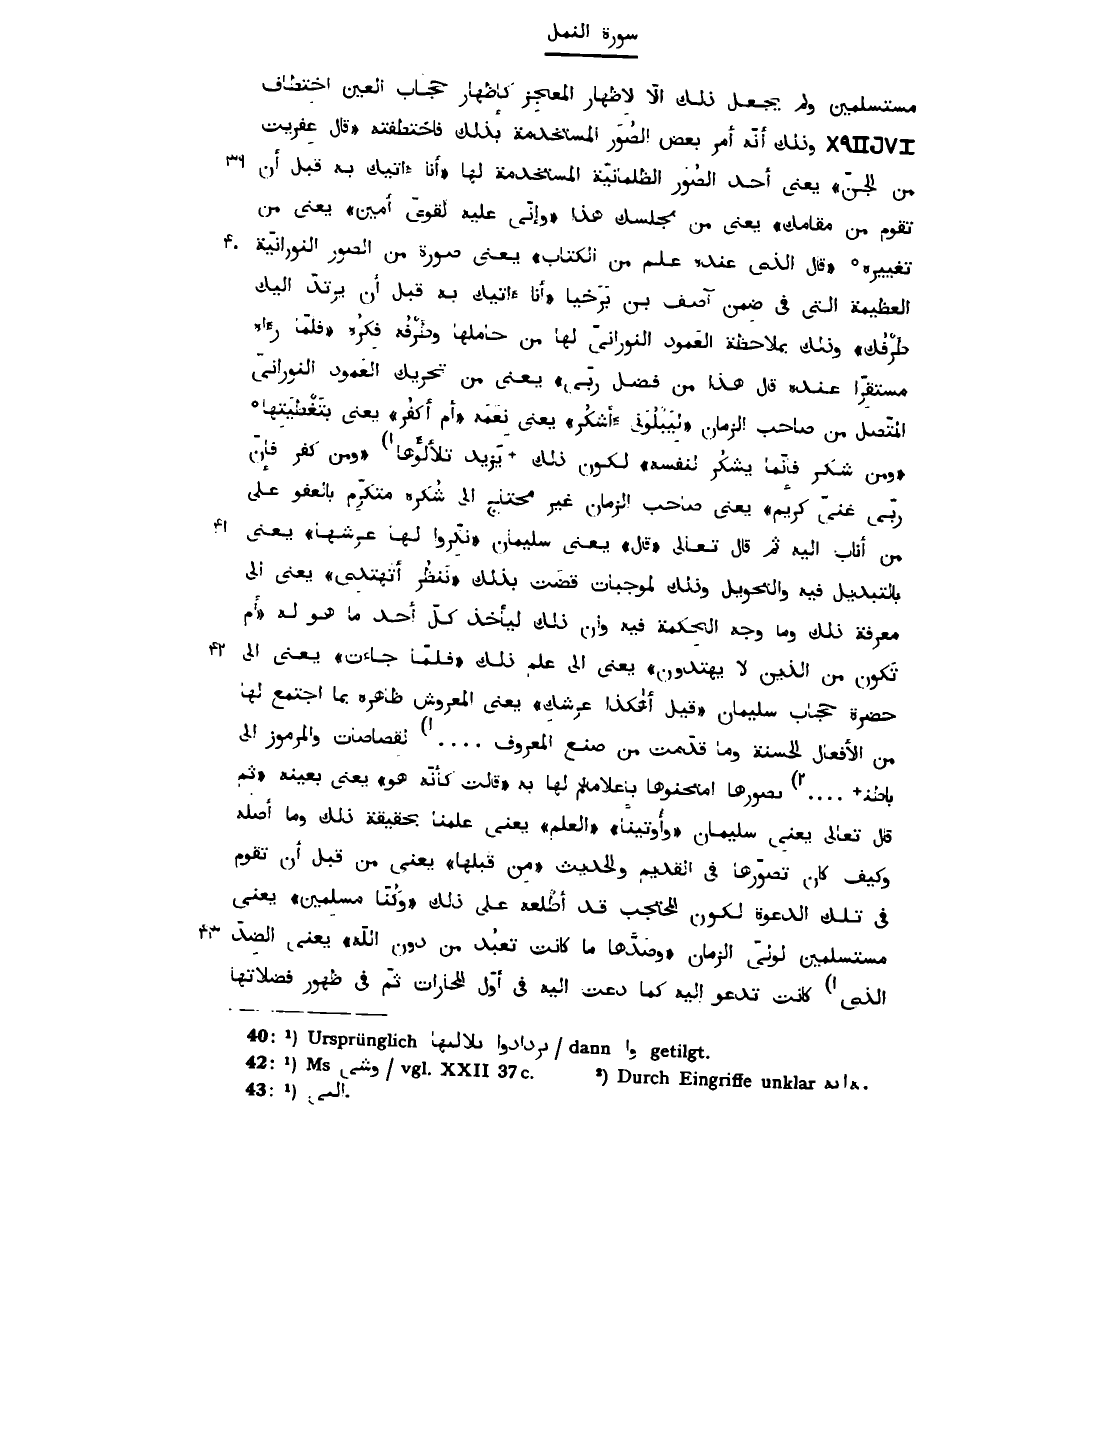 سورة النمل
مستسلمين ولم يجعل ذلك الّا لاظهار المعجز كإظهار حجاب العين اختطاف
وذلك أنّه أمر بعض الصُوَر المستخدمة بذلك فاختطفته «قال عفريت
من الجنّ» يعنى أحد الصُوَر الظلمانيّة المستخدمة لها «أنا ءاتيك به قبل أن ٣٩
تقوم من مقامك» يعنى من مجلسك هذا «وإنّى عليه لقوىّ أمين» يعنى من
تغييره° «قال الذى عنده علم من الكتاب» يعنى صورة من الصور النورانيّة ۴٠
العظيمة التى فى ضمن آصف بن بَرَخيا «أنا ءاتيك به قبل أن يرتدّ اليك
طرْفُك» وذلك بملاحظة العَمود النورانىّ لها من حاملها وطَرْفُه فكرُه «فلمّا رءاه
مستقرّا عنده قال هذا من فضل ربّى» يعنى من تحريك العَمود النورانىّ
المتّصل من صاحب الزمان «لِيَبْلُوَنى ءأشكُر» يعنى نِعَمَه «أم أكفُر» يعنى بتَغْطيَتِها°
«ومن شكر فإنّما يشكُر لنفسه» لكون ذلك +يَزيد تلألُؤُها¹) «ومن كفر فإنّ
ربّى غنىّ كريم» يعنى صاحب الزمان غير محتاج الى شُكره متكرّم بالعفو على
من أناب اليه ثمّ قال تعالى «قال» يعنى سليمان «نكّروا لها عرشها» يعنى ۴١
بالتبديل فيه والتحويل وذلك لموجبات قضت بذلك «نَنظُر أتهتدى» يعنى الى
معرفة ذلك وما وجه الحكمة فيه وأن ذلك ليأخذ كلّ أحد ما هو له «أم
تَكون من الذين لا يهتدون» يعنى الى علم ذلك «فلمّا جاءت» يعنى الى ۴٢
حضرة حجاب سليمان «قيل أهٰكذا عرشك» يعنى المعروش ظاهره بما اجتمع لها
من الأفعال الحسنة وما قدّمت من صنع المعروف ....¹) نقصاصات والمرموز الى
باطنه+ ....²) بصورها امتحنوها بإعلامهم لها به «قالت كأنّه هو» يعنى بعينه «ثم
قال تعالى يعنى سليمان «وأُوتينا» «العلم» يعنى علمنا بحقيقة ذلك وما أصله
وكيف كان تصوّرها فى القديم والحديث «مِن قبلها» يعنى من قبل أن تقوم
فى تلك الدعوة لكون المحتجب قد أطْلعه على ذلك «وكُنّا مسلمين» يعنى
مستسلمين لولىّ الزمان «وصَدَّها ما كانت تعبُد من دون اللّه» يعنى الضِدّ ۴٣
الذى¹) كانت تدعو اليه كما دعت اليه فى أوّل المحارات ثمّ فى ظهور فضلاتها
40: ¹) Ursprünglich بردادوا تلاليها / dann وا getilgt.
42: ¹) Ms وشى / vgl. XXII 37c. ²) Durch Eingriffe unklar
43: ¹)